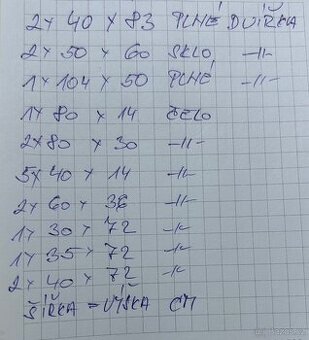 2x 40 x 83 PLNÉ DVÍŘKA
2x 50 x 60 SKLO -11-
1x 104 x 50 PLNÉ -11-
1x 80 x 14 ČELO
2x 80 x 30 -11-
5x 40 x 14 -11-
2x 60 x 36 -11-
1x 30 x 72 -11-
1x 35 x 72 -11-
2x 40 x 72 -11-
ŠÍŘKA = VÝŠKA CM